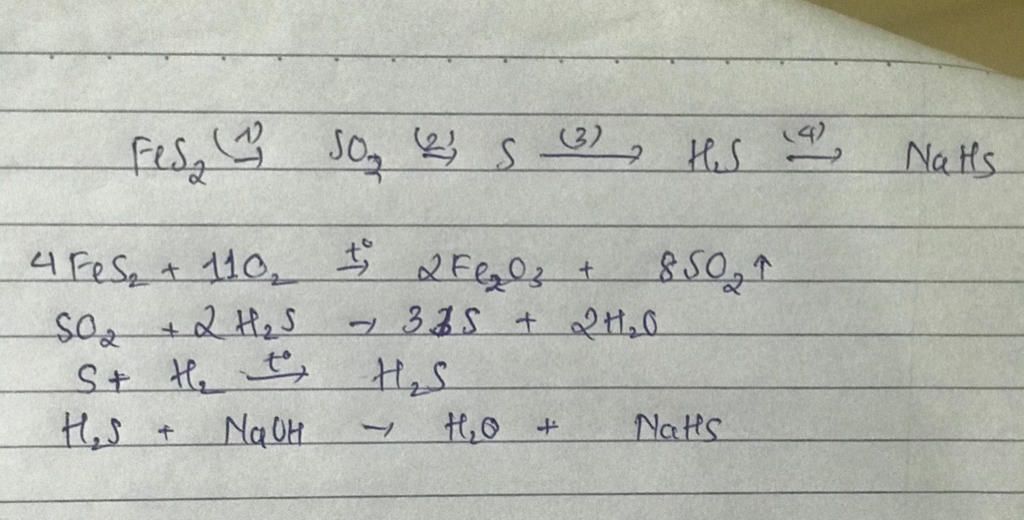 FeS₂ (1)→ SO₂ (2)→ S (3)→ H₂S (4)→ NaHS
4FeS₂ + 11O₂ t°→ 2Fe₂O₃ + 8SO₂↑
SO₂ + 2H₂S → 3S + 2H₂O
S + H₂ t°→ H₂S
H₂S + NaOH → H₂O + NaHS